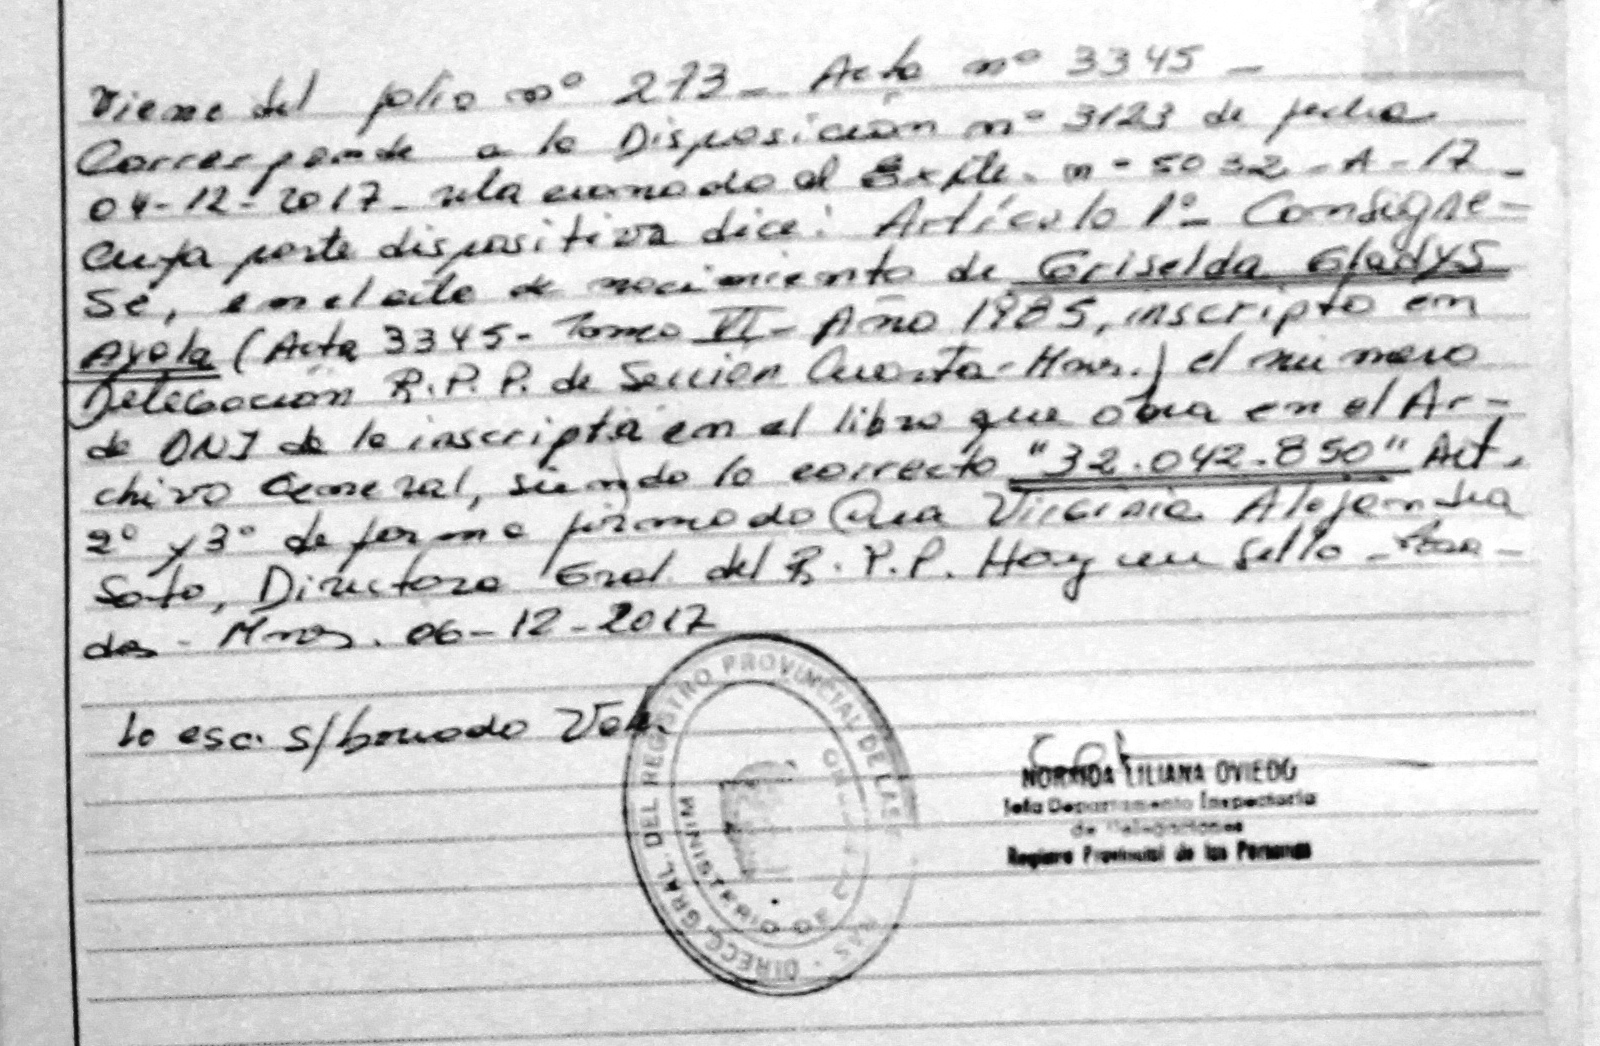 Viene del folio nº 273- Acta nº 3345-
Corresponde a la Disposición nº 3123 de fecha
04-12-2017- relacionado al Expte. nº 5032-A-17-
cuya parte dispositiva dice: Artículo 1º- Consigne-
se, en el acta de nacimiento de Griselda Gladys
Ayala (Acta 3345- Tomo VI- Año 1985, inscripta en
Delegación R.P.P. de Sección Cuarta-Mnes.) el número
de DNI de la inscripta en el libro que obra en el Ar-
chivo General, siendo lo correcto "32.042.850" Art.
2º y 3º de forma firmado Ana Virginia Alejandra
Soto, Directora Gral. del R.P.P. Hay un sello
das- Mnes. 06-12-2017
lo esc. s/borrado Vale.
DIRECC. GRAL. DEL REGISTRO PROVINCIAL DE LAS
MINISTERIO DE
NORMDA LILIANA OVIEDO
Jefa Departamento Inspectoria
de Delegaciones
Registro Provincial de las Personas